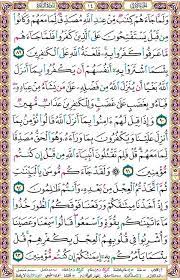 ١٤
وَلَمَّا جَآءَهُمْ كِتَٰبٌ مِّنْ عِندِ ٱللَّهِ مُصَدِّقٌ لِّمَا مَعَهُمْ وَكَانُوا۟
مِن قَبْلُ يَسْتَفْتِحُونَ عَلَى ٱلَّذِينَ كَفَرُوا۟ فَلَمَّا جَآءَهُم
مَّا عَرَفُوا۟ كَفَرُوا۟ بِهِۦ فَلَعْنَةُ ٱللَّهِ عَلَى ٱلْكَٰفِرِينَ ٨٩
بِئْسَمَا ٱشْتَرَوْا۟ بِهِۦٓ أَنفُسَهُمْ أَن يَكْفُرُوا۟ بِمَآ أَنزَلَ
ٱللَّهُ بَغْيًا أَن يُنَزِّلَ ٱللَّهُ مِن فَضْلِهِۦ عَلَىٰ مَن يَشَآءُ مِنْ عِبَادِهِۦ
فَبَآءُو بِغَضَبٍ عَلَىٰ غَضَبٍ وَلِلْكَٰفِرِينَ عَذَابٌ مُّهِينٌ
٩٠ وَإِذَا قِيلَ لَهُمْ ءَامِنُوا۟ بِمَآ أَنزَلَ ٱللَّهُ قَالُوا۟ نُؤْمِنُ بِمَآ
أُنزِلَ عَلَيْنَا وَيَكْفُرُونَ بِمَا وَرَآءَهُۥ وَهُوَ ٱلْحَقُّ مُصَدِّقًا
لِّمَا مَعَهُمْ قُلْ فَلِمَ تَقْتُلُونَ أَنۢبِيَآءَ ٱللَّهِ مِن قَبْلُ إِن كُنتُم
مُّؤْمِنِينَ ٩١ وَلَقَدْ جَآءَكُم مُّوسَىٰ بِٱلْبَيِّنَٰتِ
ثُمَّ ٱتَّخَذْتُمُ ٱلْعِجْلَ مِنۢ بَعْدِهِۦ وَأَنتُمْ ظَٰلِمُونَ
٩٢ وَإِذْ أَخَذْنَا مِيثَٰقَكُمْ وَرَفَعْنَا فَوْقَكُمُ ٱلطُّورَ خُذُوا۟
مَآ ءَاتَيْنَٰكُم بِقُوَّةٍ وَٱسْمَعُوا۟ قَالُوا۟ سَمِعْنَا وَعَصَيْنَا
وَأُشْرِبُوا۟ فِى قُلُوبِهِمُ ٱلْعِجْلَ بِكُفْرِهِمْ قُلْ
بِئْسَمَا يَأْمُرُكُم بِهِۦٓ إِيمَٰنُكُمْ إِن كُنتُم مُّؤْمِنِينَ ٩٣